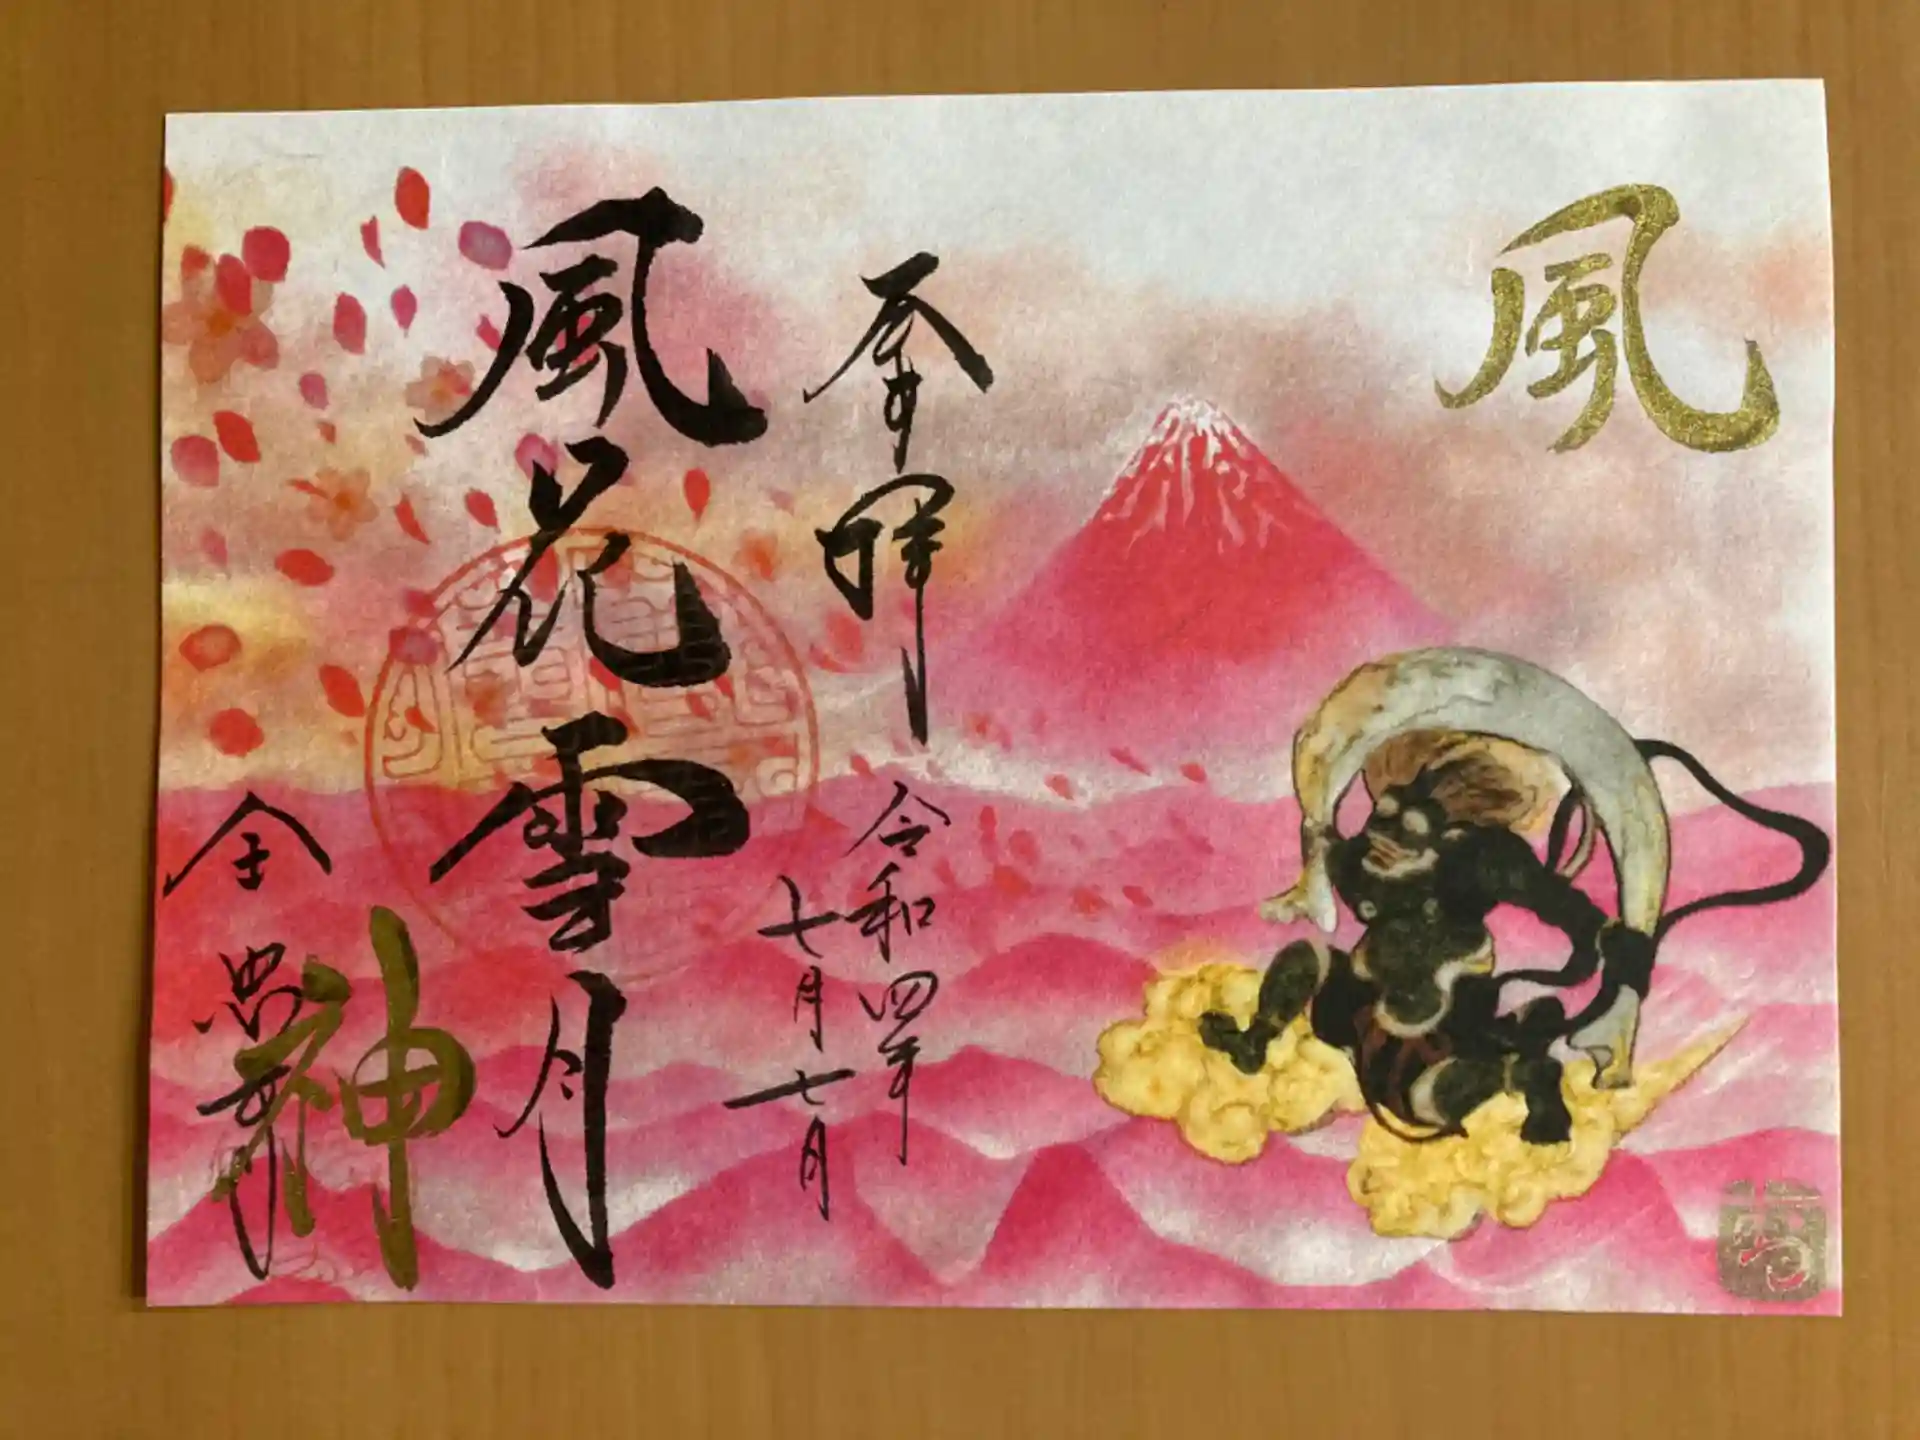 風
奉拝
令和四年
七月七日
風花雪月
神
全忠寺